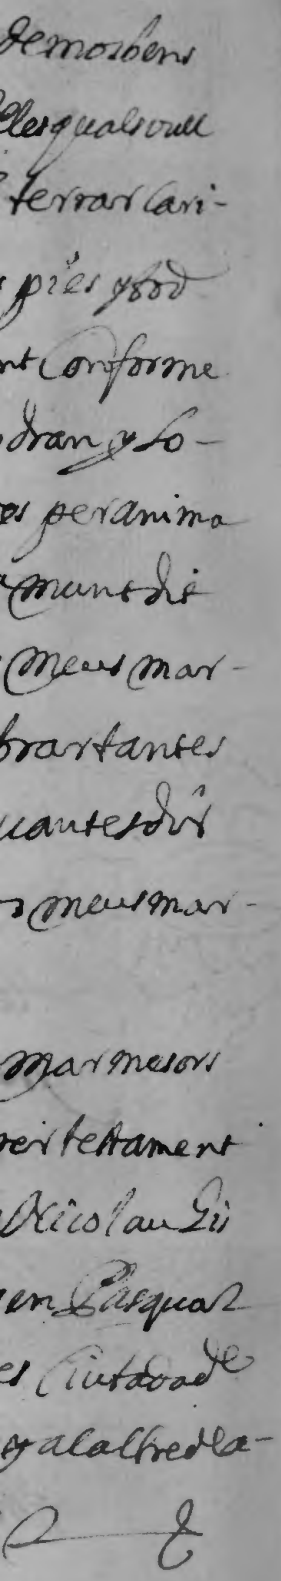 de mos bens
les quals vull
terrar cari-
pies y sod
nt conforme
dran y so-
es per anima
munt dit
meus mar-
brar tantes
uantes dir
meus mar-
marmesors
testament
Nicolau Gil
en Pasqual
es Ciutada de
y a la altre de la-